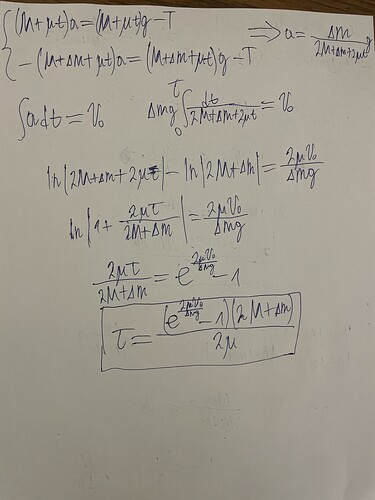 {(M+μt)a=(M+μt)g-T
-(M+Δm+μt)a=(M+Δm+μt)g-T
⇒ a = Δm/(2M+Δm+2μt) g
∫adt=V₀
Δmg ∫₀^τ dt/(2M+Δm+2μt) = V₀
ln|2M+Δm+2μτ| - ln|2M+Δm| = 2μV₀/Δmg
ln|1+ 2μτ/(2M+Δm)| = 2μV₀/Δmg
2μτ/(2M+Δm) = e^(2μV₀/Δmg) - 1
τ = (e^(2μV₀/Δmg) - 1)(2M+Δm)/2μ